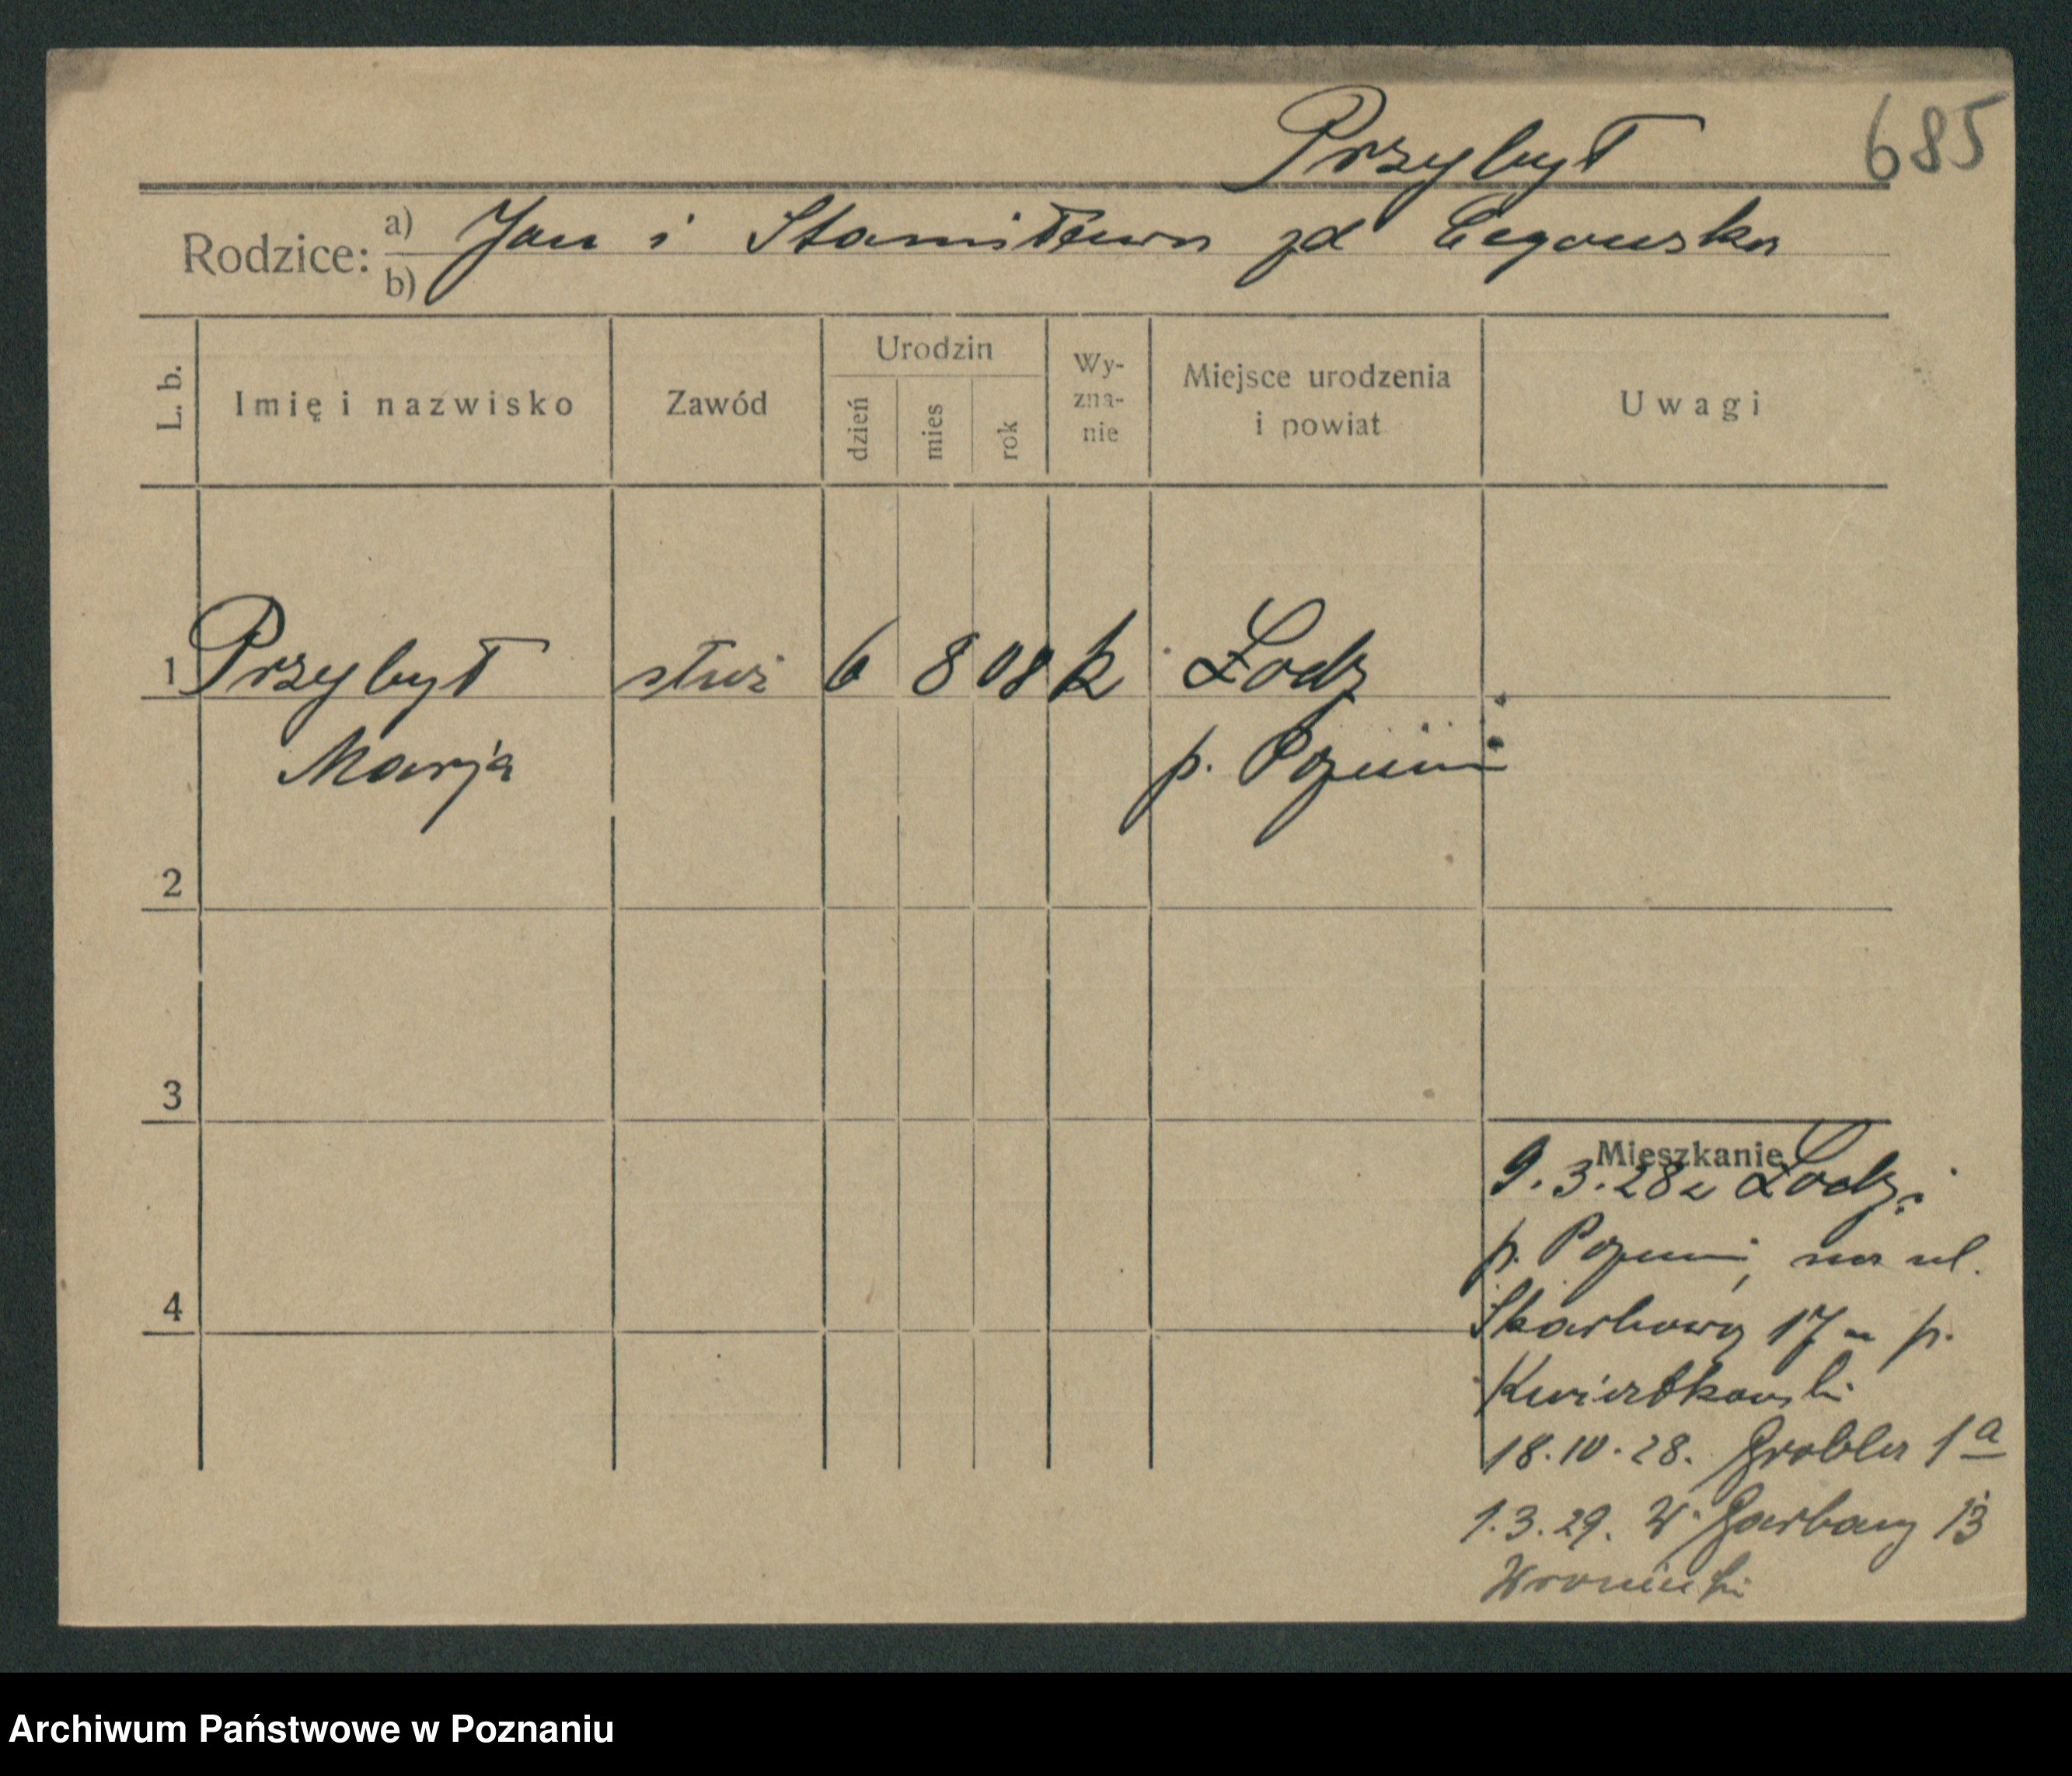 Przybył 685
Rodzice: a) Jan i Stanisława zd Cegowska
b)
L. b. Imię i nazwisko Zawód Urodzin dzień mies rok Wy-zna-nie Miejsce urodzenia i powiat Uwagi
1 Przybył służ 6 8 08 k Łodz
Marja p. Poznań
2
3
4
Mieszkanie
9.3.28 z Łodzi
p. Poznań, na ul.
Skarbowa 17 u p.
Kwiatkowski
18.10.28. Grobla 1a
1.3.29. W. Garbary 13
Archiwum Państwowe w Poznaniu